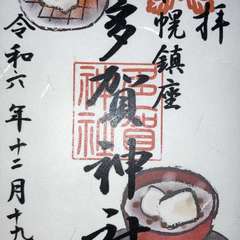 拝
幌鎮座
多賀神社
多賀神社
令和六年十二月十九